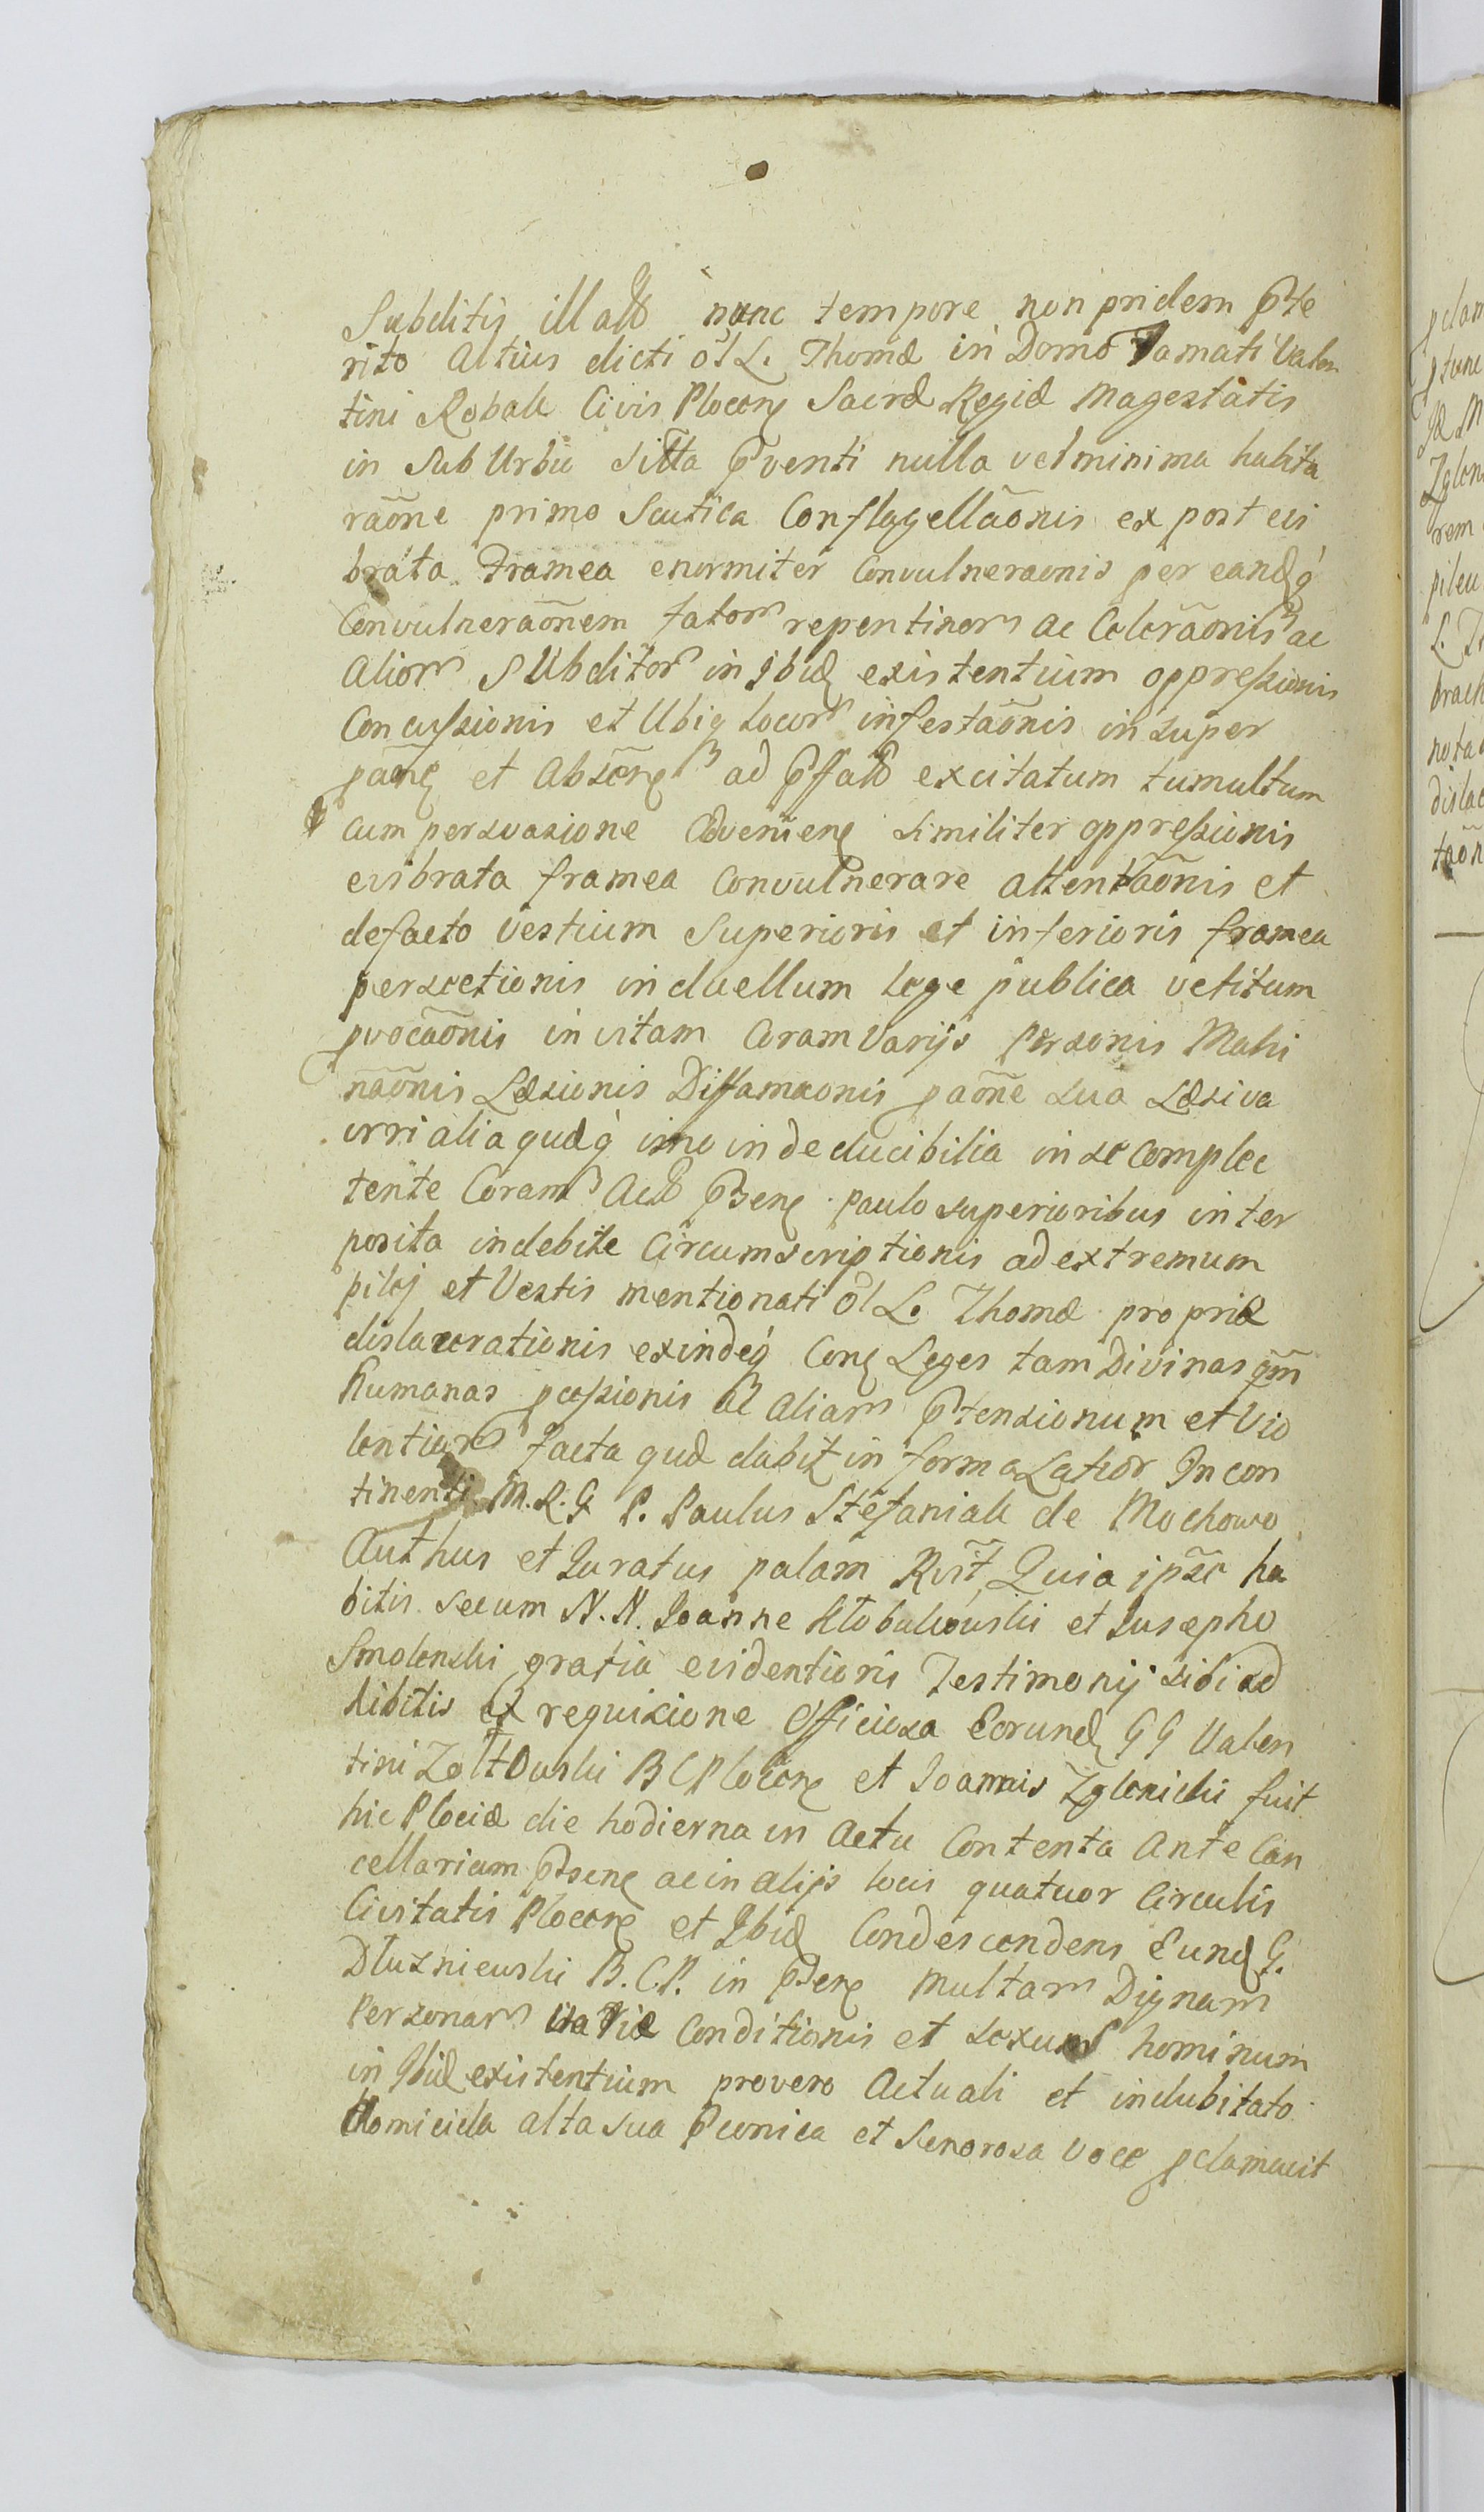 Subditis illatt nunc tempore non pridem pte
rito Altius dicti ol L. Thomæ in Domo Famati Valen
tini Robak Civis Plocen Sacræ Regiæ Magestatis
in Sub Urbÿ sitta pventi nulla vel minima habita
raõne primo Scutica Conflagellaõnis ex post evi
brata Framea enormiter Convulneraonis per eandq
Convulneraõnem fator repentinor ac Celeraõnis ac
Alior SUbditor in Ibid existentium oppressionis
Concussionis et Ubiq Locor infestaõnis insuper
et ad pffatt excitatum tumultum
cum persvasione Advenien similiter oppressionis
evibrata framea Convulnerare attentaõnis et
defacto vestium Superioris et inferioris framea
persectionis in duellum Lege publica vetitum
pvocaõnis in vitam Coram Varijs Personis Machi
naõnis Læsionis Diffamaonis paõne sua Læsiva
irri aliaquæq imo inde ducibilia in se Complec
tente Coram Act psen paulo superioribus inter
posita indebite Circumscriptionis ad extremum
pilej et Vestis mentionati ol L. Thomæ propriæ
dislacerationis exindeq Con Leges tam Divinas qm
humanas pcessionis ac aliar ptensionum et Vio
lentiar facta quæ dabit in forma Latior In con
tinenti M. R. G P. Paulus Stefaniak de Mochowo
Authus et Juratus palam Rvit Quia ipse ha
bitis secum N. N. Joanne Klobukowski et Jusæpho
Smolenski gratia evidentioris Testimonij sibi ad
hibitis ex requisicione Officiosa Eorund GG Valen
tini Zoltowski B C Plocen et Joannis Zglenicki fuit
hic Plociæ die hodierna in Actu Contenta Ante Can
cellariam ptsen ac in alijs locis quatuor Circulis
Civitatis Plocen et Ibid Condescendens Eund G.
Dluzniewski B. C. P. in psen Multar Dignar
Personar Variæ Conditionis et sexus hominum
in Ibid existentium provero Actuali et indubitato
Homicida alta sua Pconica et Senorosa voce pclamavit